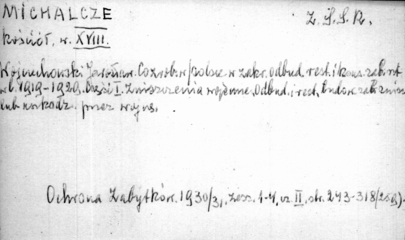 MICHALCZE
Z. S. S. R.
kościół. w. XVIII.
Wojciechowski Jarosław. Co zrob. w Polsce w zakr. odbud. rest. i kons. zab. szt.
w l. 1919-1929. Część I. Zniszczenia wojenne. Odbud. i rest. budow. zab. zniszcz.
lub uszkodz. przez wojnę.
Ochrona Zabytków. 1930/31, zesz. 1-4, cz. II, str. 243-318/